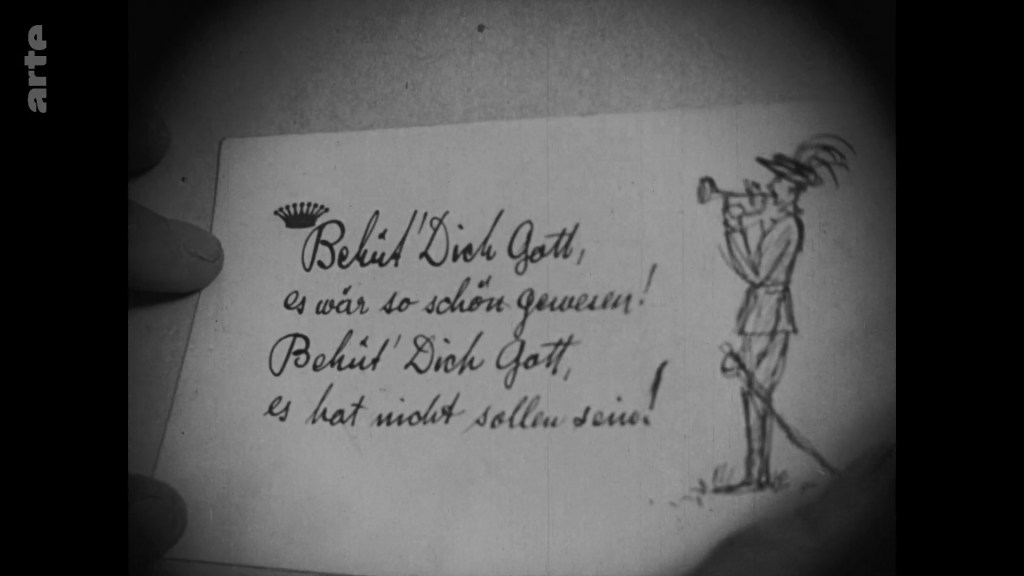 arte
Behüt' Dich Gott,
es wär so schön gewesen!
Behüt' Dich Gott,
es hat nicht sollen sein!